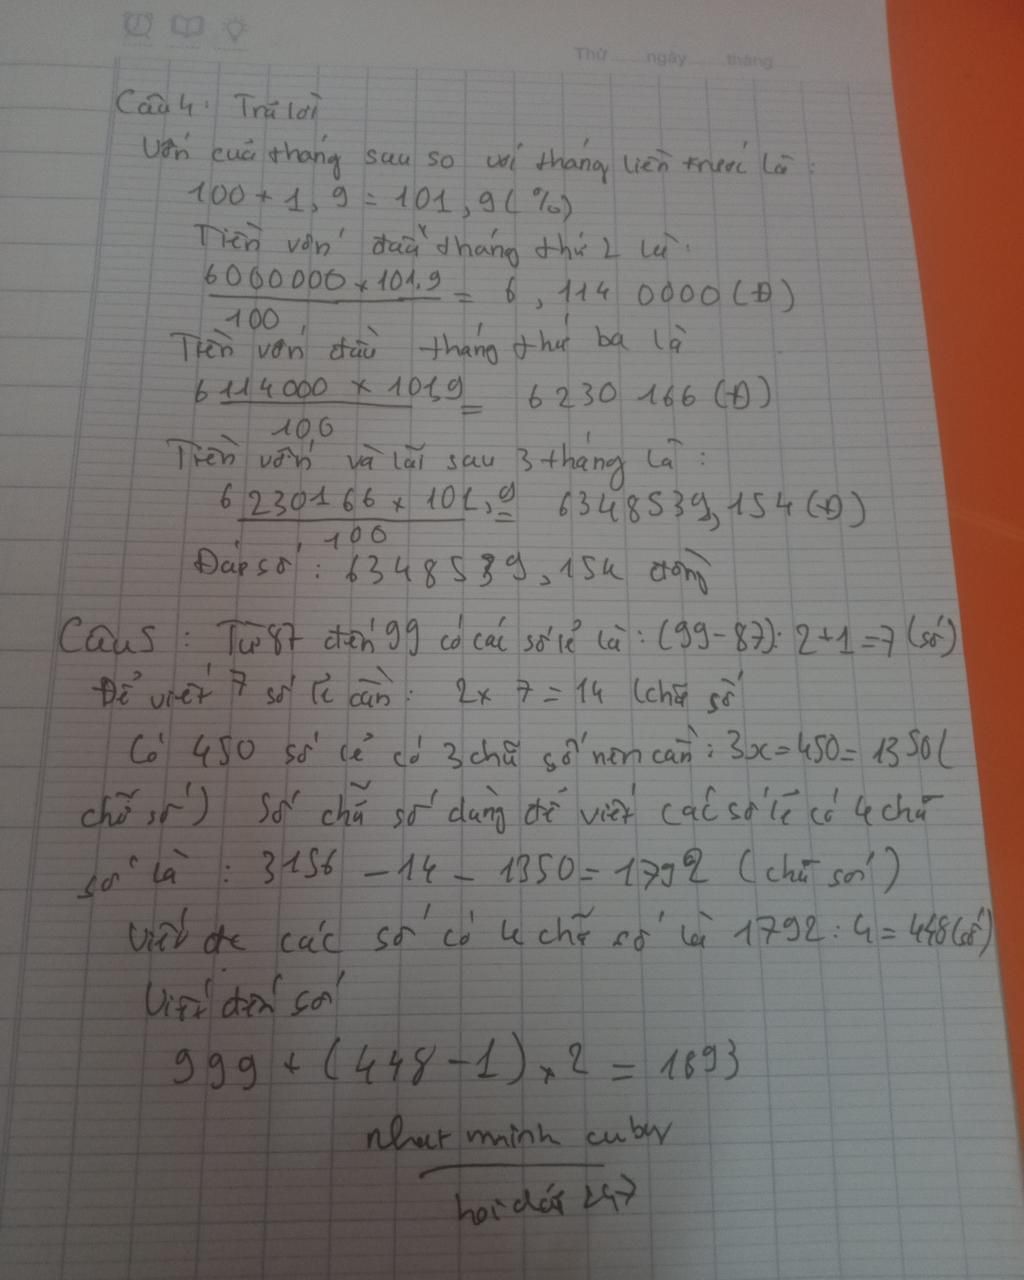 Thứ ngày tháng
Câu 4: Trả lời
Vốn của tháng sau so với tháng liền trước là:
100 + 1,9 = 101,9 (%)
Tiền vốn đầu tháng thứ 2 là:
6000000 x 101,9 = 6,114 0000 (Đ)
100
Tiền vốn đầu tháng thứ ba là
6114000 x 101,9 = 6230 166 (Đ)
100
Tiền vốn và lãi sau 3 tháng là:
6230166 x 101,9 = 6348539,154 (Đ)
100
Đáp số: 6348539,154 đồng
Câu 5: Từ 87 đến 99 có các số lẻ là: (99-87): 2+1=7 (số)
Để viết 7 số lẻ cần: 2x 7 = 14 (chữ số
Có 450 số lẻ có 3 chữ số nên cần: 3x=450=1350(
chữ số) Số chữ số dùng để viết các số lẻ có 4 chữ
số là: 3156 - 14 - 1350 = 1792 (chữ số)
Viết đc các số có 4 chữ số là 1792: 4 = 448 (số)
Viết đến số
999 + (448-1) x 2 = 1893
nhat minh cuber
hoi dap 247